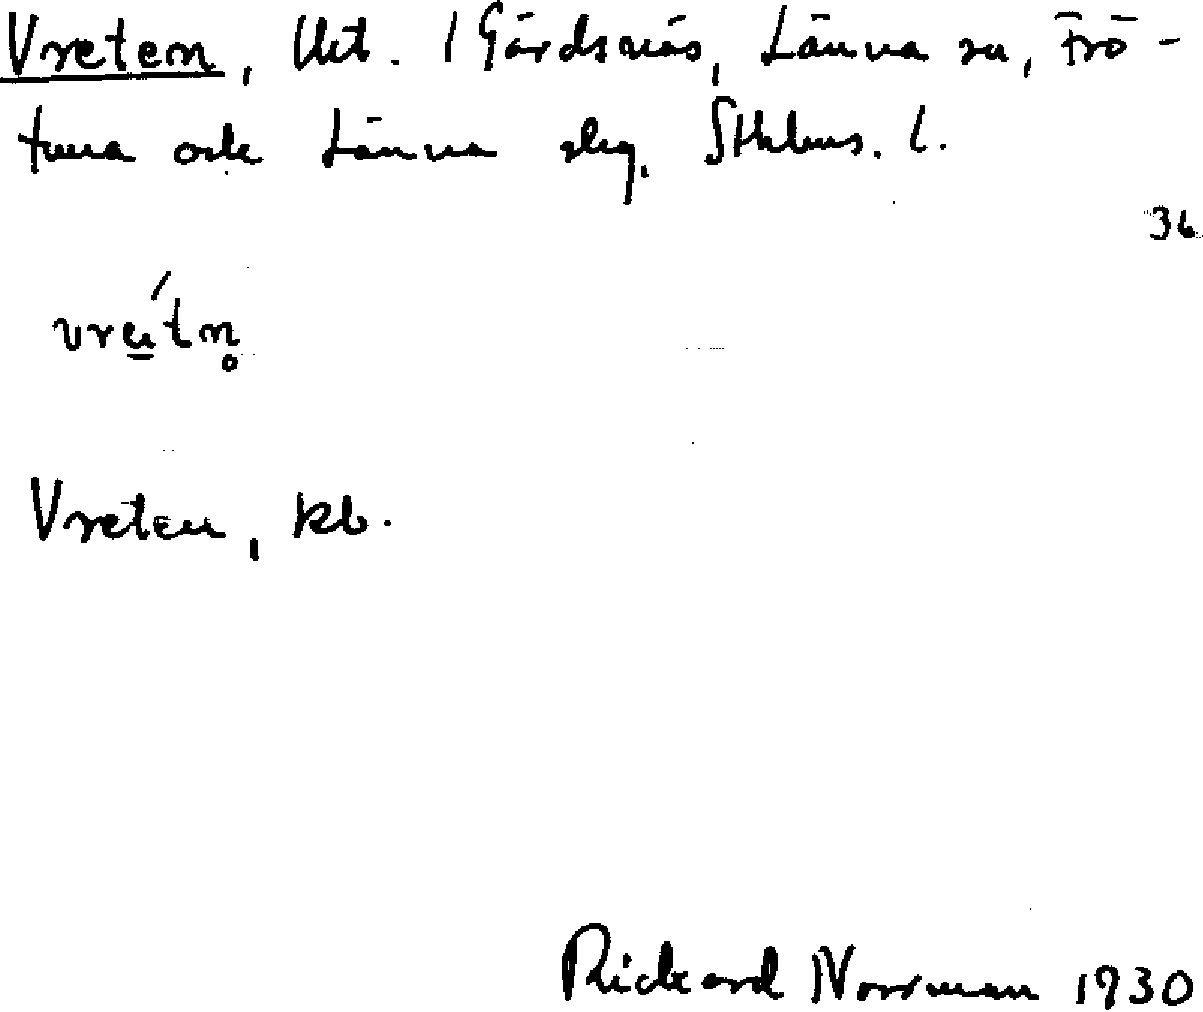 Vreten, Utt. / Gärdsnäs, Länna sn, Frö-
tuna och Länna skg. Sthlms. l.
36
Vreten, kb.
Rickard Norrman 1930